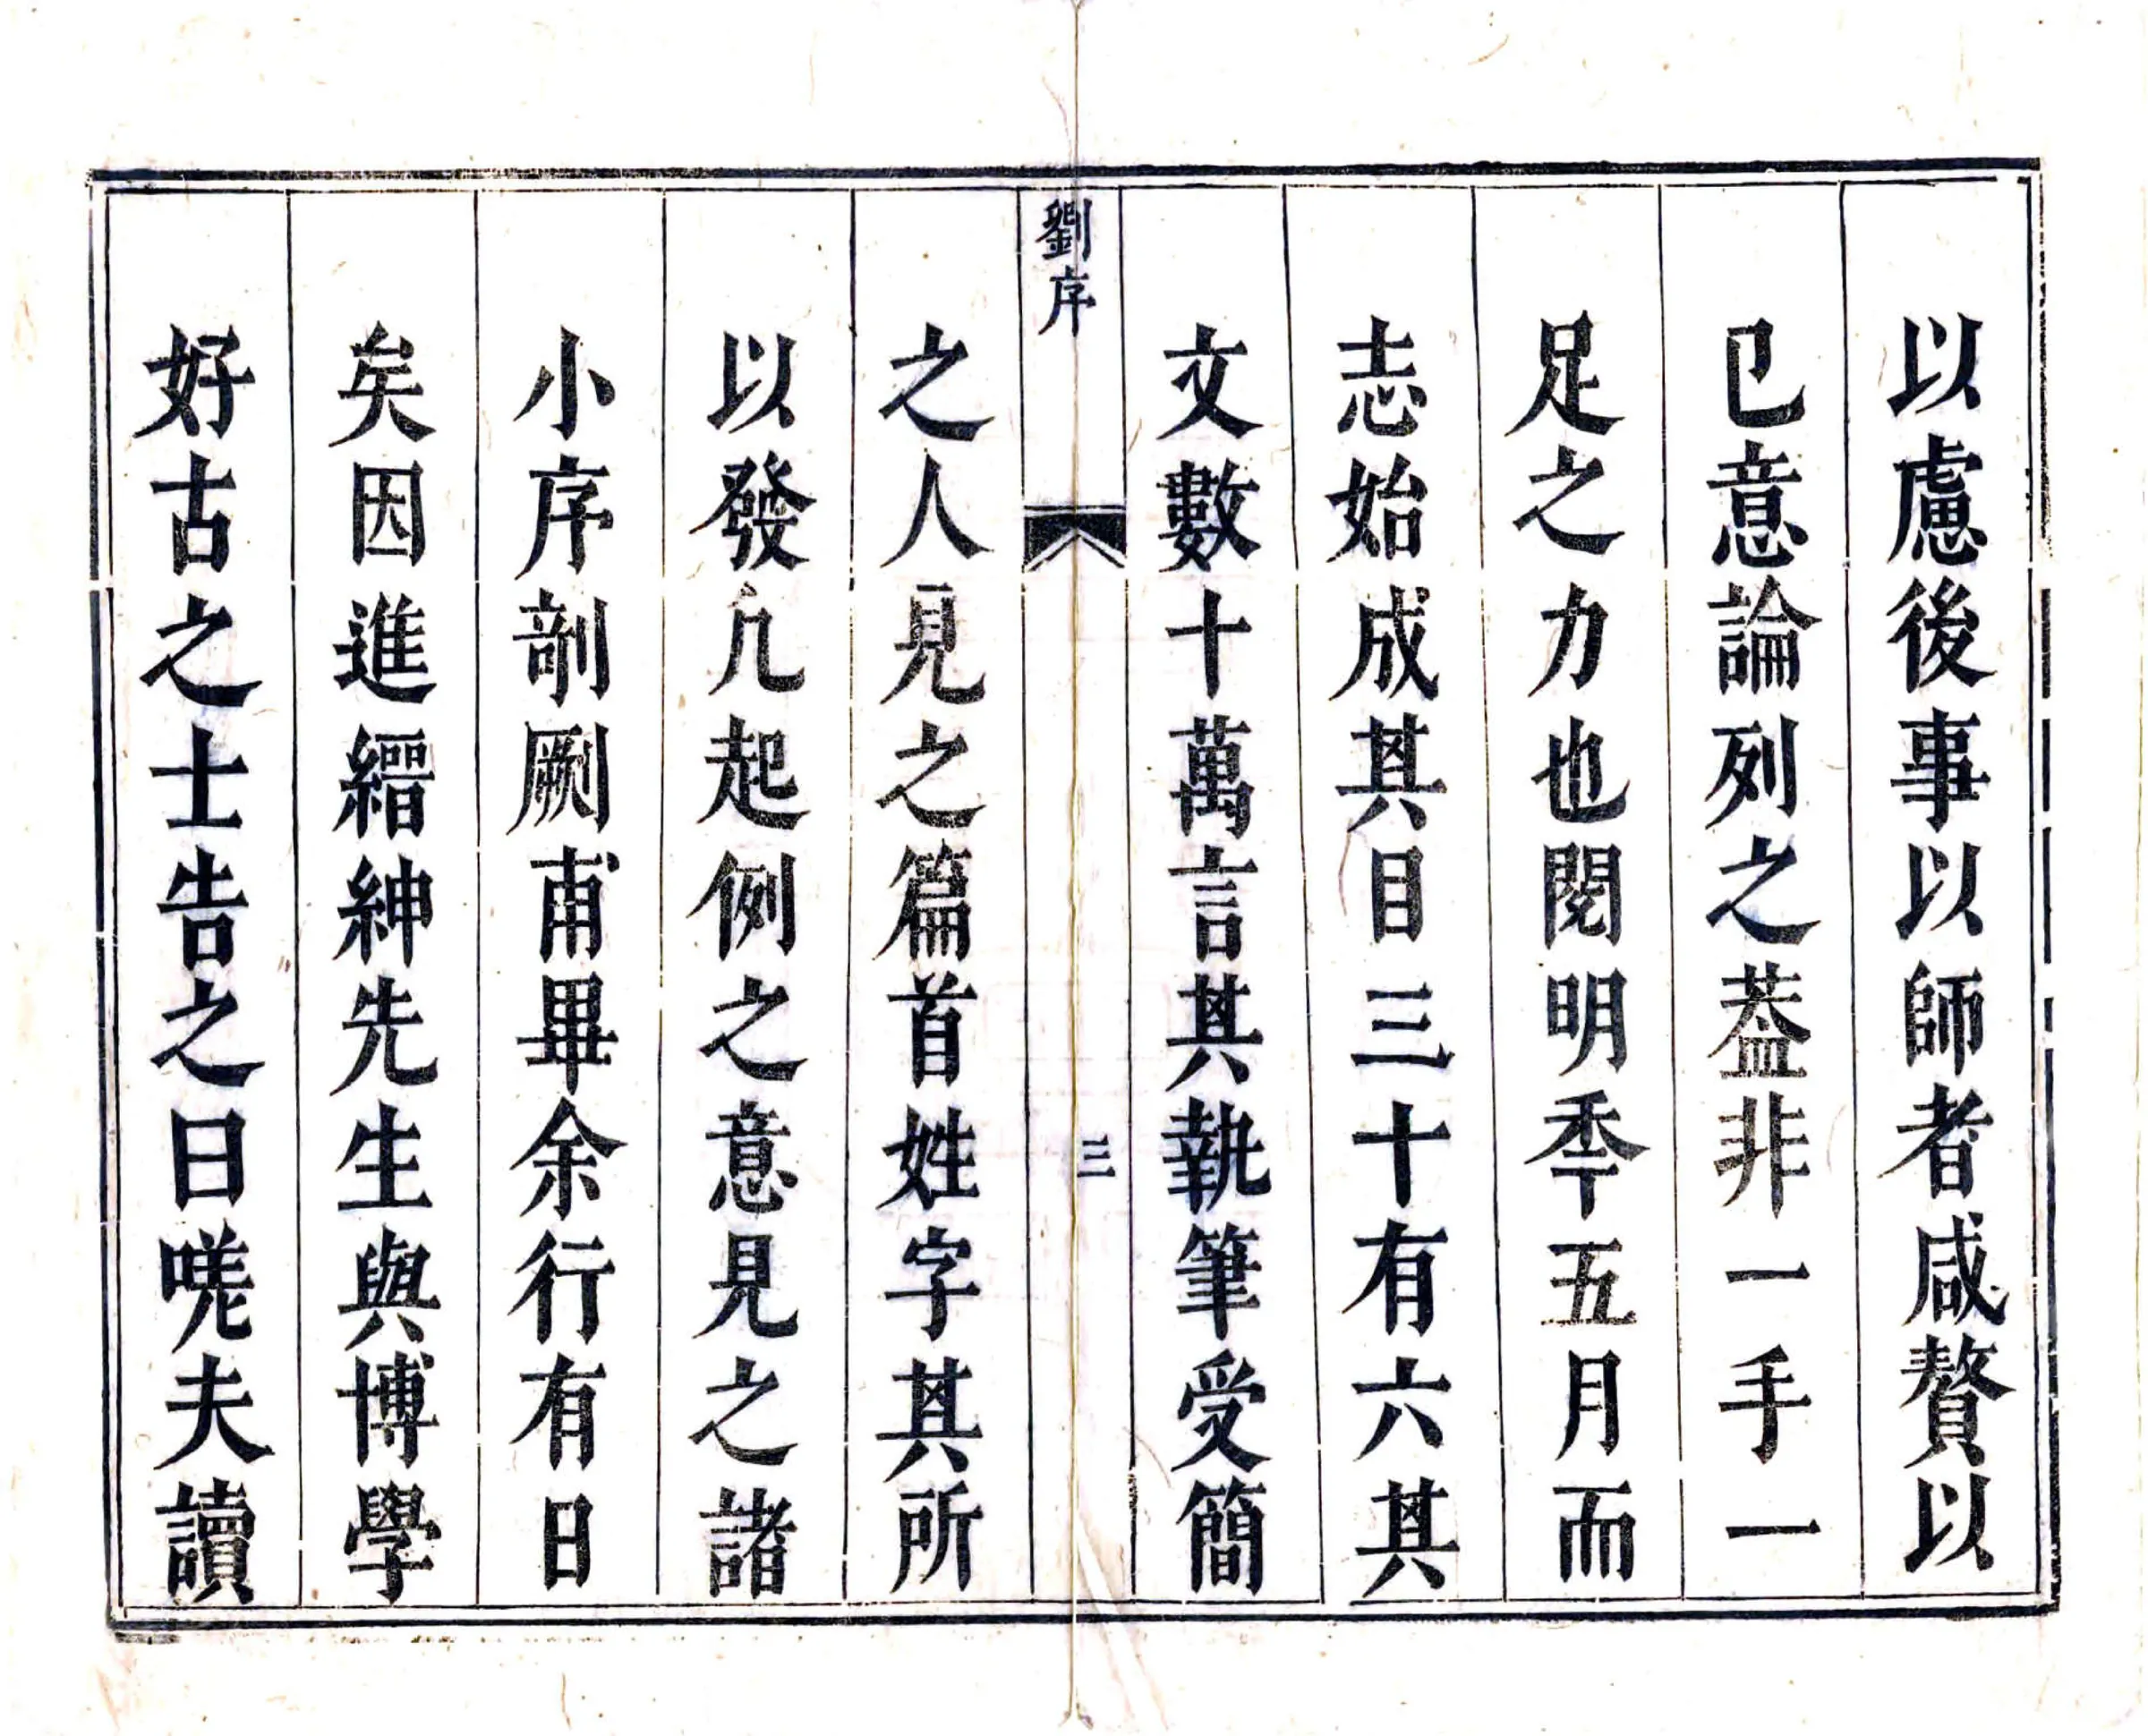 以慮後事以師者咸贅以
已意論列之葢非一手一
足之力也閱明秊五月而
志始成其目三十有六其
文數十萬言其執筆受簡
劉序
三
之人見之篇首姓字其所
以發凢起例之意見之諸
小序剞劂甫畢余行有日
矣因進縉紳先生與博學
好古之士告之曰嗟夫讀